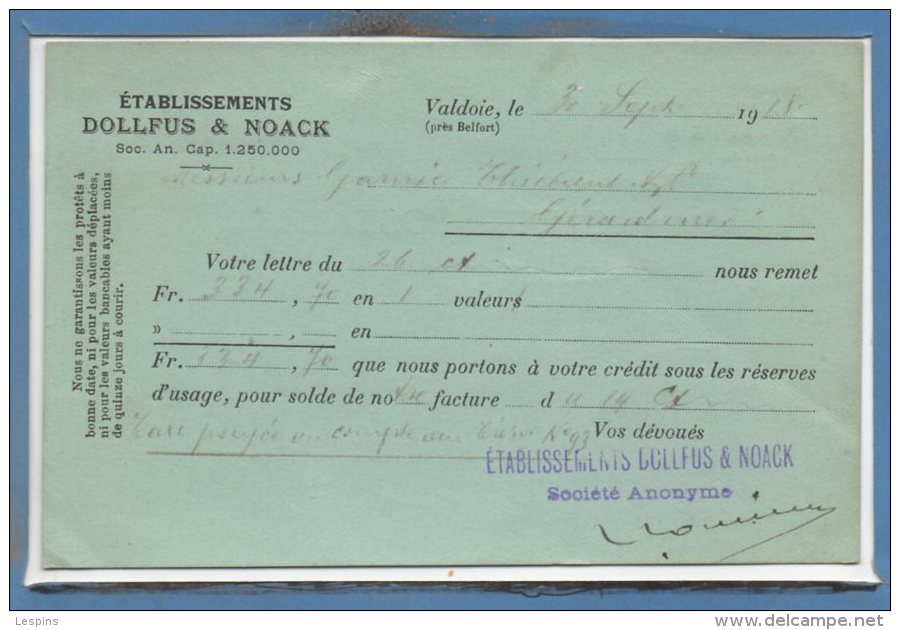 ÉTABLISSEMENTS
DOLLFUS & NOACK
Soc. An. Cap. 1.250.000
Valdoie, le 30 Sept 1918
(près Belfort)
Messieurs Garnier Thiébaut
Gérardmer
Nous ne garantissons les protêts à
bonne date, ni pour les valeurs déplacées,
ni pour les valeurs bancables ayant moins
de quinze jours à courir.
Votre lettre du 26 ct nous remet
Fr. 334, 70 en 1 valeurs
» , en
Fr. 334, 70 que nous portons à votre crédit sous les réserves
d'usage, pour solde de notre facture d u 19 Ct
Taxe payée en compte au Trésor No 93
Vos dévoués
ÉTABLISSEMENTS DOLLFUS & NOACK
Société Anonyme
Lespins
www.delcampe.net